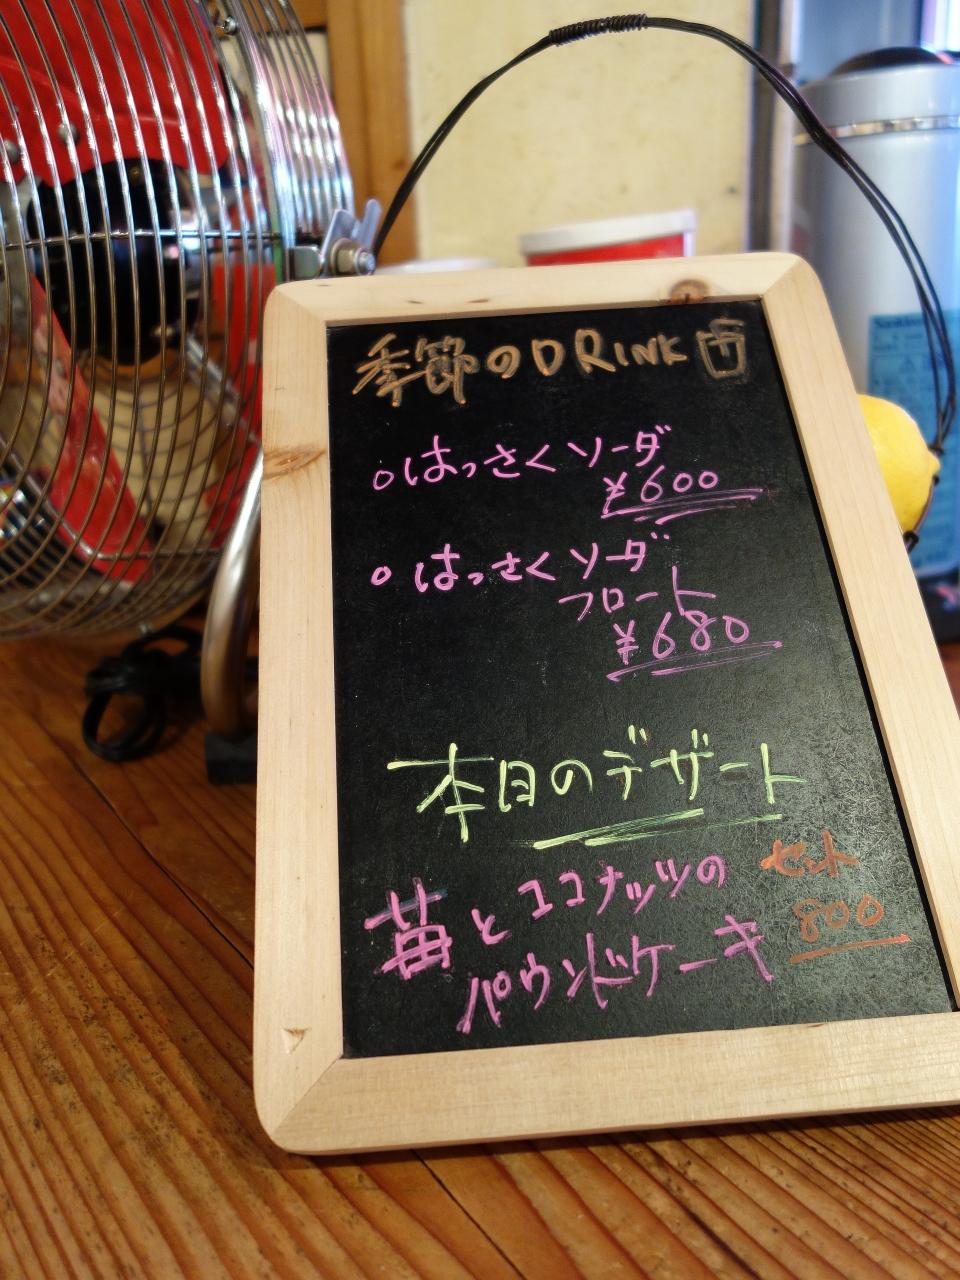 季節のDRINK
○はっさくソーダ
¥600
○はっさくソーダ
フロート
¥680
本日のデザート
苺とココナッツの
パウンドケーキ
セット
800